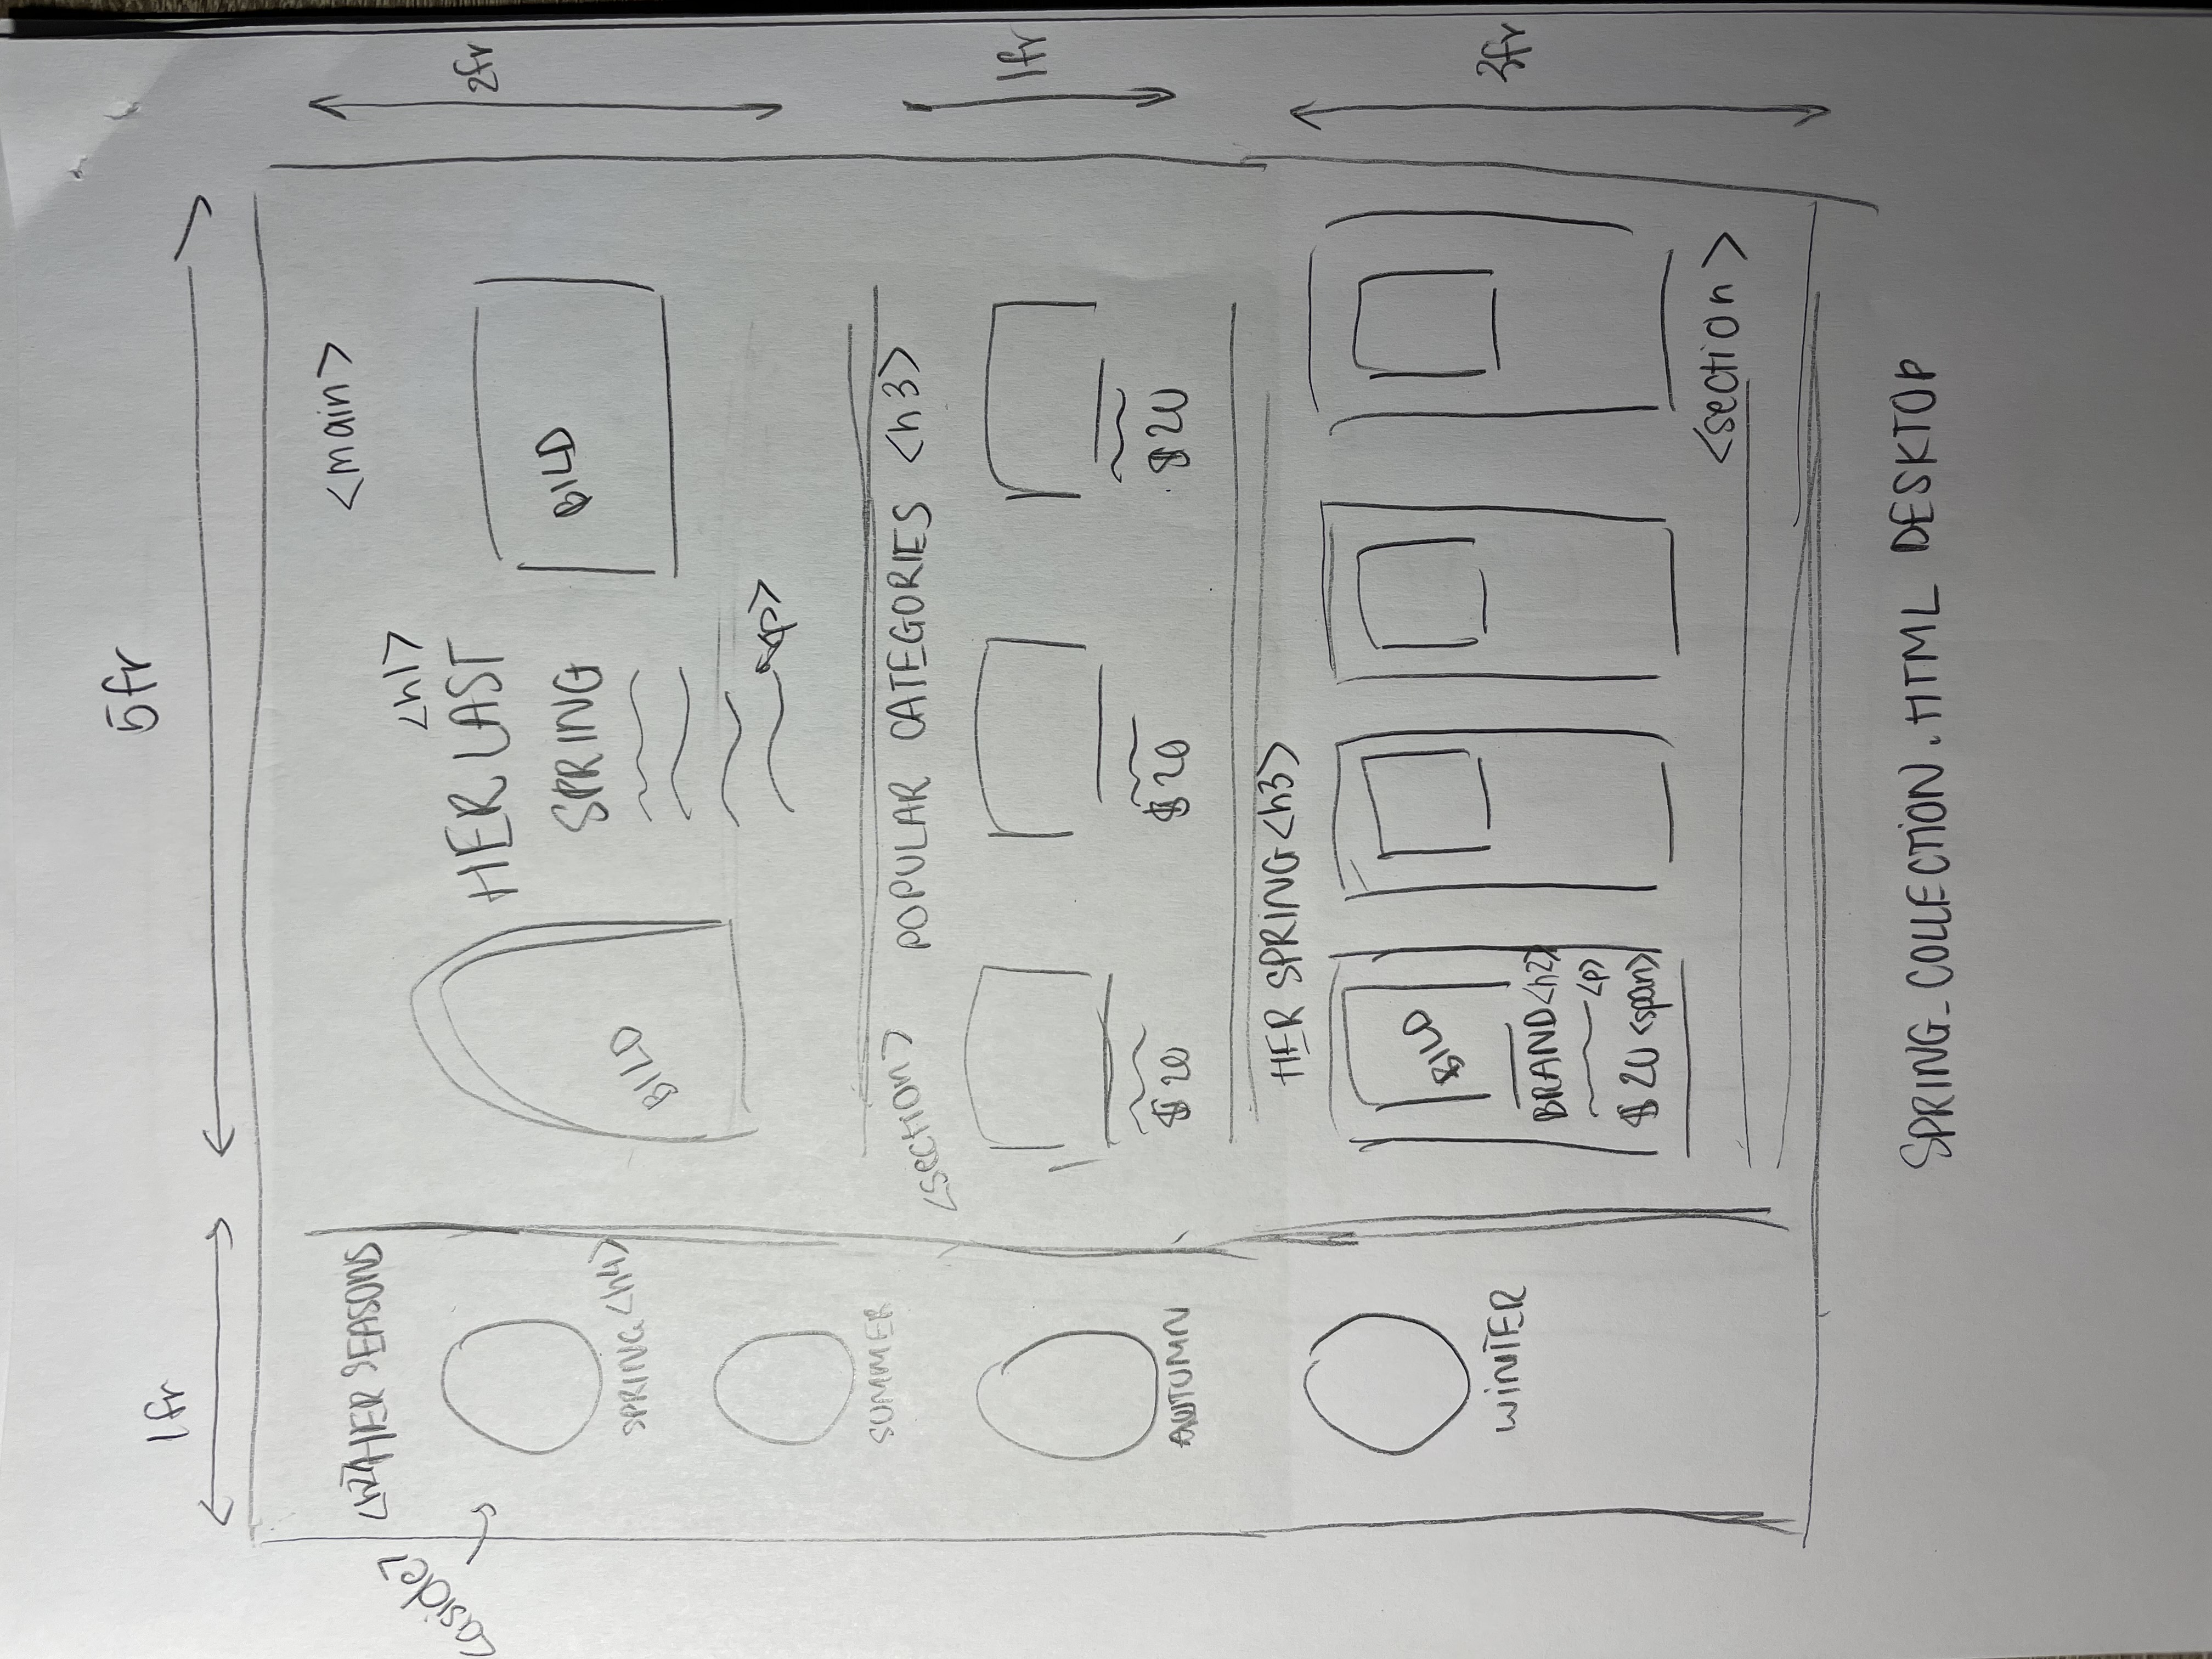 1fr
5fr
<aside>
<h2>HER SEASONS
SPRING <h4>
SUMMER
AUTUMN
WINTER
<main>
<h1>
HER LAST
SPRING
BILD
BILD
<p>
2fr
<section>
POPULAR CATEGORIES <h3>
$20
$20
$20
1fr
HER SPRING <h3>
BILD
BRAND <h2>
<p>
$20 <span>
<section>
3fr
SPRING_COLLECTION.HTML DESKTOP